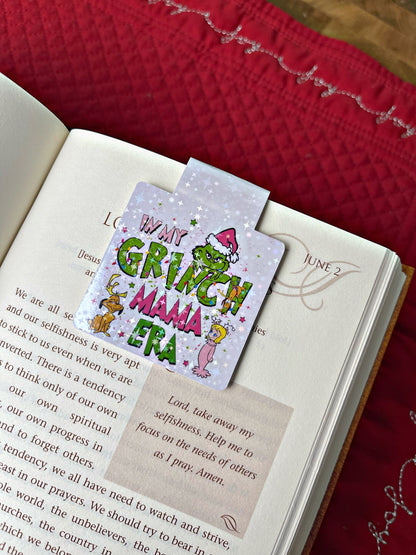 JUNE 2
IN MY
GRINCH
MAMA
ERA
[Jesus
an
les
We are all se
and our selfishness is very apt
to stick to us even when we are
nverted. There is a tendency
s to think only of our own
our own spiritual
our own progress in
nd to forget others.
tendency, we all have need to watch and strive,
east in our prayers. We should try to bear in
ole world, the unbelievers, the
urches, the country in
which we belong
Lord, take away my
selfishness. Help me to
focus on the needs of others
as I pray. Amen.